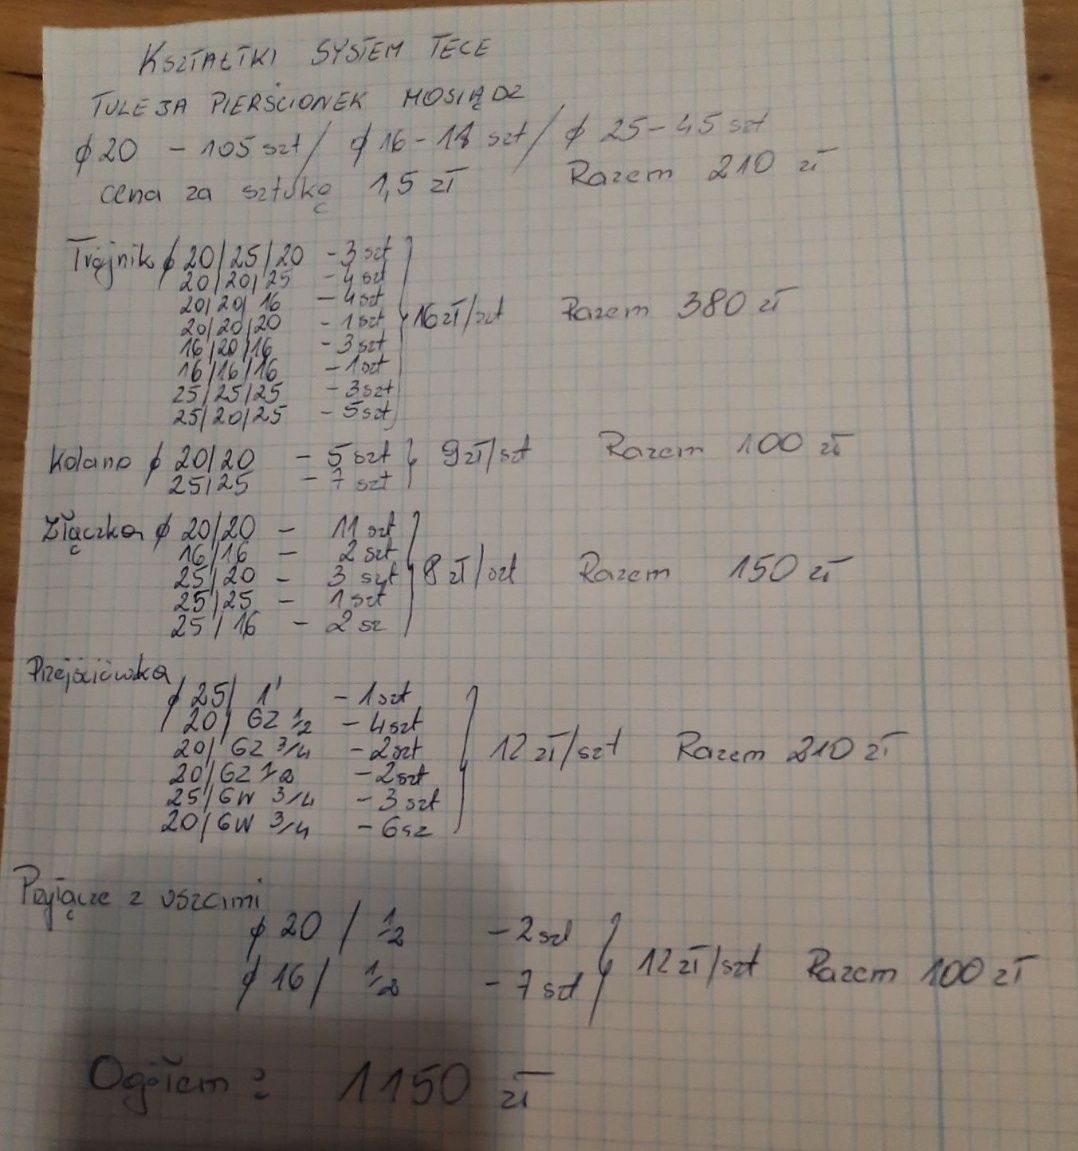 KSZTAŁTKI SYSTEM TECE
TULEJA PIERŚCIONEK MOSIĄDZ
ϕ 20 - 105 szt / ϕ 16 - 18 szt / ϕ 25 - 45 szt
cena za sztukę 1,5 zł Razem 210 zł
Trójnik ϕ 20/25/20 - 3 szt
20/20/25 - 4 szt
20/20/16 - 4szt
20/20/20 - 1szt 16 zł/szt Razem 380 zł
16/20/16 - 3szt
16/16/16 - 1szt
25/25/25 - 3szt
25/20/25 - 5szt
Kolano ϕ 20/20 - 5 szt 9zł/szt Razem 100 zł
25/25 - 7 szt
Złączka ϕ 20/20 - 11 szt
16/16 - 2 szt
25/20 - 3 szt 8 zł/szt Razem 150 zł
25/25 - 1 szt
25/16 - 2 sz
Przejściówka
ϕ 25/ 1' - 1szt
20/ GZ 1/2 - 4szt
20/ GZ 3/4 - 2szt 12 zł/szt Razem 210 zł
20/GZ 1/2 - 2szt
25/GW 3/4 - 3 szt
20/GW 3/4 - 6sz
Przyłącze z uszcimi
ϕ 20 / 1/2 - 2 szt
ϕ 16 / 1/2 - 7 szt 12 zł/szt Razem 100 zł
Ogółem : 1150 zł